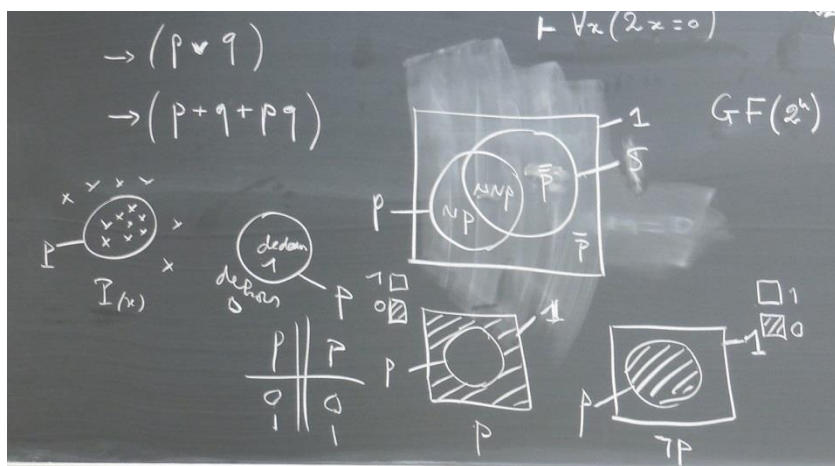 → (p ∨ q)
→ (p + q + pq)
⊢ ∀x (2x = 0)
GF(2ⁿ)
1
S
p
NP
NNP
p̿
p̄
P
P(x)
dedans
1
dehors
0
p
p p
0 0
1 1
1
0
1
p
p
1
0
1
p
¬p